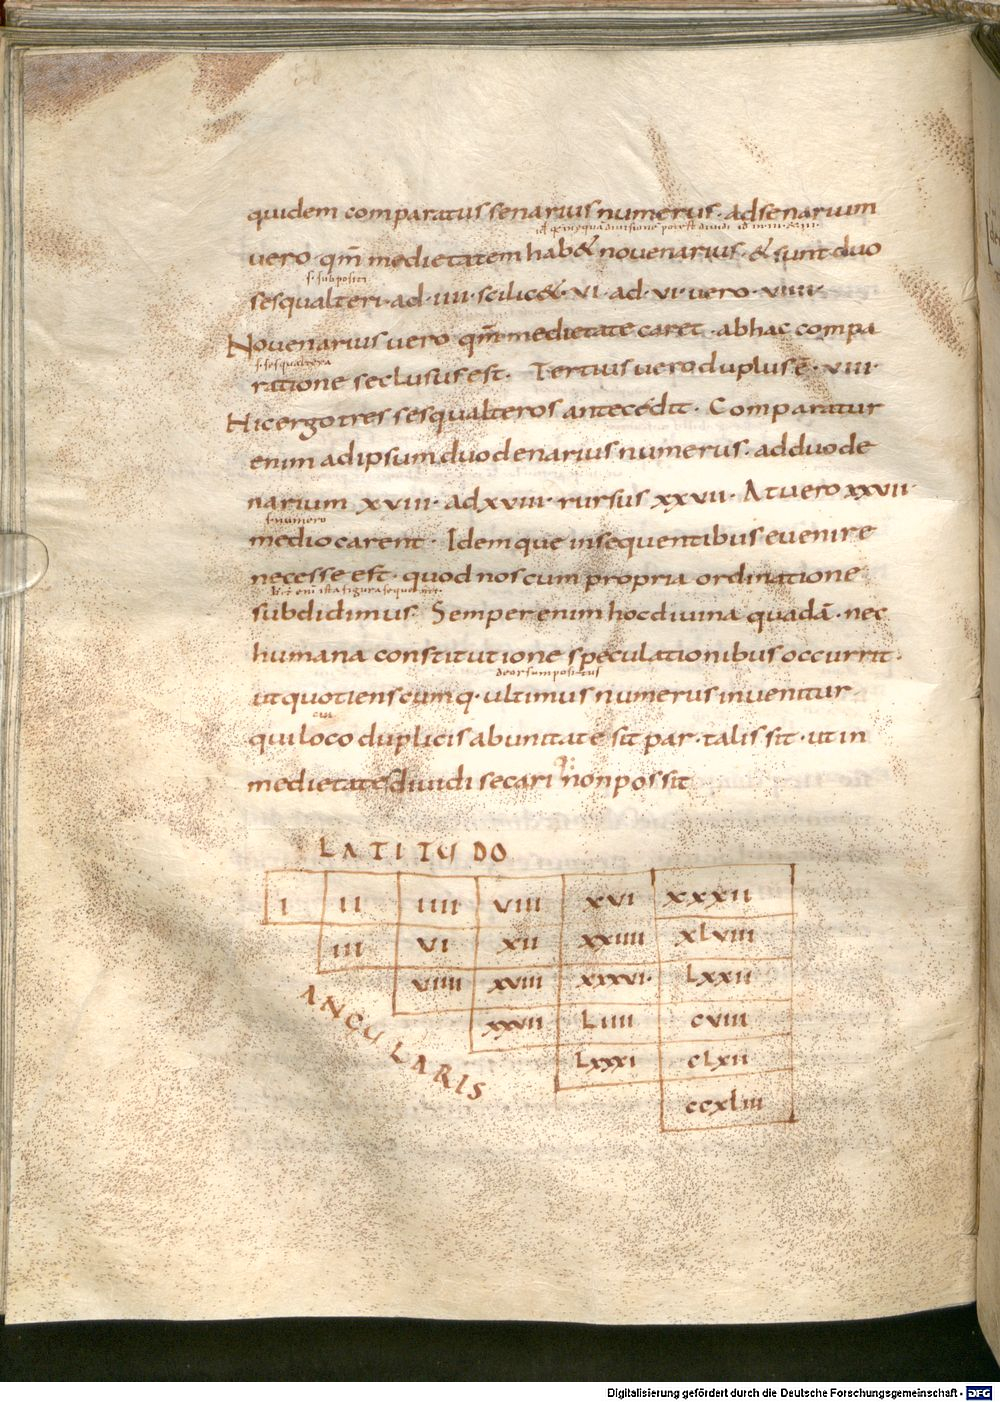 quidem comparatus senarius numerus · ad senarium
vero qm̄ medietatem hab& novenarius · & sunt duo
s· subpositi
sesqualteri · ad · IIII · scilic& · VI · ad · VI · vero · VIIII ·
Novenarius vero qm̄ medietate caret · ab hac compa
s· sesqualtera
ratione seclusus est · Tertius vero duplus ē · VIII ·
Hic ergo tres sesqualteros antecedit · Comparatur
enim ad ipsum duodenarius numerus · ad duode
narium XVIII · ad XVIII · rursus XXVII · At vero XXVII ·
s· numero
medio carent · Idemque in sequentibus evenire
necesse est · quod nos cum propria ordinatione
subdidimus · Semper enim hoc divina quadā · nec
humana constitutione speculationibus occurrit ·
deorsum positus
ut quotienscumq· ultimus numerus invenitur
qui loco duplicis ab unitate sit par · talis sit · ut in
medietates dividi secari non possit
LATITUDO
I II IIII VIII XVI XXXII
III VI XII XXIIII XLVIII
VIIII XVIII XXXVI · LXXII
ANGULARIS
XXVII LIIII CVIII
LXXXI CLXII
CCXLIII
Digitalisierung gefördert durch die Deutsche Forschungsgemeinschaft - DFG